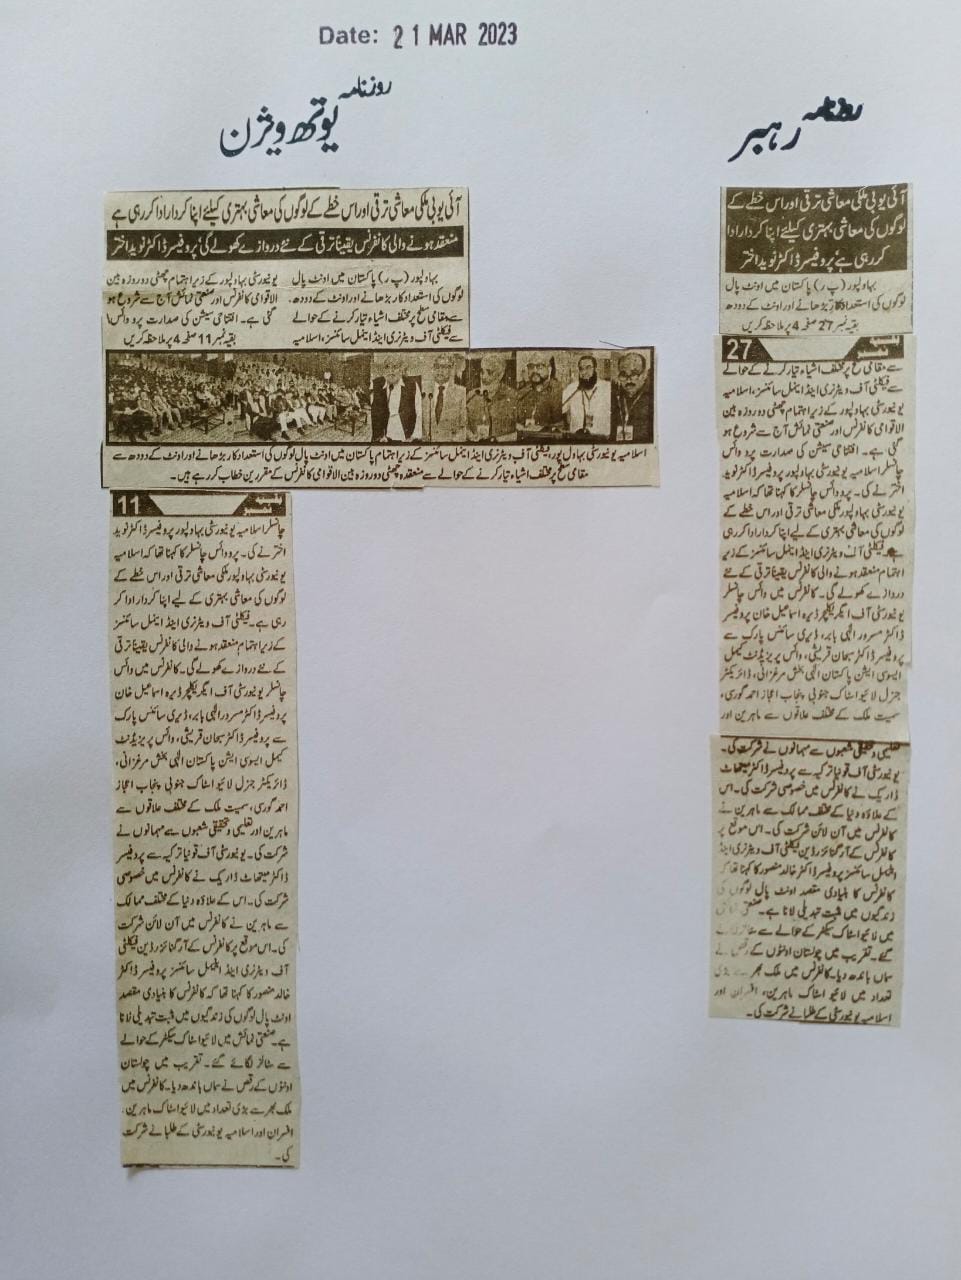 Date: 21 MAR 2023
روزنامہ
یوتھ ویژن
آئی یو بی ملکی معاشی ترقی اور اس خطے کے لوگوں کی معاشی بہتری کیلئے اپنا کردار ادا کر رہی ہے
منعقد ہونے والی کانفرنس یقیناً ترقی کے نئے دروازے کھولے گی: پروفیسر ڈاکٹر نوید اختر
بہاولپور (پ ر) پاکستان میں اونٹ پال
لوگوں کی استعداد کار بڑھانے اور اونٹ کے دودھ
سے مقامی سطح پر مختلف اشیاء تیار کرنے کے حوالے
سے فیکلٹی آف ویٹرنری اینڈ اینمل سائنسز، اسلامیہ
یونیورسٹی بہاولپور کے زیر اہتمام چھٹی دو روزہ بین
الاقوامی کانفرنس اور صنعتی نمائش آج سے شروع ہو
گئی ہے۔ افتتاحی سیشن کی صدارت پرو وائس
بقیہ نمبر 11 صفحہ 4 پر ملاحظہ کریں
اسلامیہ یونیورسٹی بہاول پور، فیکلٹی آف ویٹرنری اینڈ اینمل سائنسز کے زیر اہتمام پاکستان میں اونٹ پال لوگوں کی استعداد کار بڑھانے اور اونٹ کے دودھ سے
مقامی سطح پر مختلف اشیاء تیار کرنے کے حوالے سے منعقدہ چھٹی دو روزہ بین الاقوامی کانفرنس کے مقررین خطاب کر رہے ہیں۔
بقیہ نمبر 11
چانسلر اسلامیہ یونیورسٹی بہاولپور پروفیسر ڈاکٹر نوید
اختر نے کی۔ پرو وائس چانسلر کا کہنا تھا کہ اسلامیہ
یونیورسٹی بہاولپور ملکی معاشی ترقی اور اس خطے کے
لوگوں کی معاشی بہتری کے لیے اپنا کردار ادا کر
رہی ہے۔ فیکلٹی آف ویٹرنری اینڈ اینمل سائنسز
کے زیر اہتمام منعقد ہونے والی کانفرنس یقیناً ترقی
کے نئے دروازے کھولے گی۔ کانفرنس میں وائس
چانسلر یونیورسٹی آف ایگریکلچر ڈیرہ اسماعیل خان
پروفیسر ڈاکٹر مسرور الٰہی بابر، ڈیری سائنس پارک
سے پروفیسر ڈاکٹر سبحان قریشی، وائس پریزیڈنٹ
کیمل ایسوسی ایشن پاکستان الٰہی بخش مرغزانی،
ڈائریکٹر جنرل لائیو اسٹاک جنوبی پنجاب اعجاز
احمد گورسی، سمیت ملک کے مختلف علاقوں سے
ماہرین اور تعلیمی و تحقیقی شعبوں سے مہمانوں نے
شرکت کی۔ یونیورسٹی آف قونیا ترکیہ سے پروفیسر
ڈاکٹر میتھاٹ ڈاریک نے کانفرنس میں خصوصی
شرکت کی۔ اس کے علاوہ دنیا کے مختلف ممالک
سے ماہرین نے کانفرنس میں آن لائن شرکت
کی۔ اس موقع پر کانفرنس کے آرگنائزر ڈین فیکلٹی
آف ویٹرنری اینڈ اینیمل سائنسز پروفیسر ڈاکٹر
خالد منصور کا کہنا تھا کہ کانفرنس کا بنیادی مقصد
اونٹ پال لوگوں کی زندگیوں میں مثبت تبدیلی لانا
ہے۔ صنعتی نمائش میں لائیو اسٹاک سیکٹر کے حوالے
سے سٹالز لگائے گئے۔ تقریب میں چولستان
اونٹوں کے رقص نے سماں باندھ دیا۔ کانفرنس میں
ملک بھر سے بڑی تعداد میں لائیو اسٹاک ماہرین،
افسران اور اسلامیہ یونیورسٹی کے طلبا نے شرکت
کی۔
روزنامہ
رہبر
آئی یو بی ملکی معاشی ترقی اور اس خطے کے
لوگوں کی معاشی بہتری کیلئے اپنا کردار ادا
کر رہی ہے: پروفیسر ڈاکٹر نوید اختر
بہاولپور (پ ر) پاکستان میں اونٹ پال
لوگوں کی استعداد کار بڑھانے اور اونٹ کے دودھ
بقیہ نمبر 27 صفحہ 4 پر ملاحظہ کریں
بقیہ نمبر 27
سے مقامی سطح پر مختلف اشیاء تیار کرنے کے حوالے
سے فیکلٹی آف ویٹرنری اینڈ اینمل سائنسز، اسلامیہ
یونیورسٹی بہاولپور کے زیر اہتمام چھٹی دو روزہ بین
الاقوامی کانفرنس اور صنعتی نمائش آج سے شروع ہو
گئی ہے۔ افتتاحی سیشن کی صدارت پرو وائس
چانسلر اسلامیہ یونیورسٹی بہاولپور پروفیسر ڈاکٹر نوید
اختر نے کی۔ پرو وائس چانسلر کا کہنا تھا کہ اسلامیہ
یونیورسٹی بہاولپور ملکی معاشی ترقی اور اس خطے کے
لوگوں کی معاشی بہتری کے لیے اپنا کردار ادا کر رہی
ہے۔ فیکلٹی آف ویٹرنری اینڈ اینمل سائنسز کے زیر
اہتمام منعقد ہونے والی کانفرنس یقیناً ترقی کے نئے
دروازے کھولے گی۔ کانفرنس میں وائس چانسلر
یونیورسٹی آف ایگریکلچر ڈیرہ اسماعیل خان پروفیسر
ڈاکٹر مسرور الٰہی بابر، ڈیری سائنس پارک سے
پروفیسر ڈاکٹر سبحان قریشی، وائس پریزیڈنٹ کیمل
ایسوسی ایشن پاکستان الٰہی بخش مرغزانی، ڈائریکٹر
جنرل لائیو اسٹاک جنوبی پنجاب اعجاز احمد گورسی،
سمیت ملک کے مختلف علاقوں سے ماہرین اور
تعلیمی و تحقیقی شعبوں سے مہمانوں نے شرکت کی۔
یونیورسٹی آف قونیا ترکیہ سے پروفیسر ڈاکٹر میتھاٹ
ڈاریک نے کانفرنس میں خصوصی شرکت کی۔ اس
کے علاوہ دنیا کے مختلف ممالک سے ماہرین نے
کانفرنس میں آن لائن شرکت کی۔ اس موقع پر
کانفرنس کے آرگنائزر ڈین فیکلٹی آف ویٹرنری اینڈ
اینیمل سائنسز پروفیسر ڈاکٹر خالد منصور کا کہنا تھا کہ
کانفرنس کا بنیادی مقصد اونٹ پال لوگوں کی
زندگیوں میں مثبت تبدیلی لانا ہے۔ صنعتی
میں لائیو اسٹاک سیکٹر کے حوالے سے
گئے۔ تقریب میں چولستان اونٹوں کے رقص نے
سماں باندھ دیا۔ کانفرنس میں ملک بھر سے بڑی
تعداد میں لائیو اسٹاک ماہرین، افسران اور
اسلامیہ یونیورسٹی کے طلبا نے شرکت کی۔